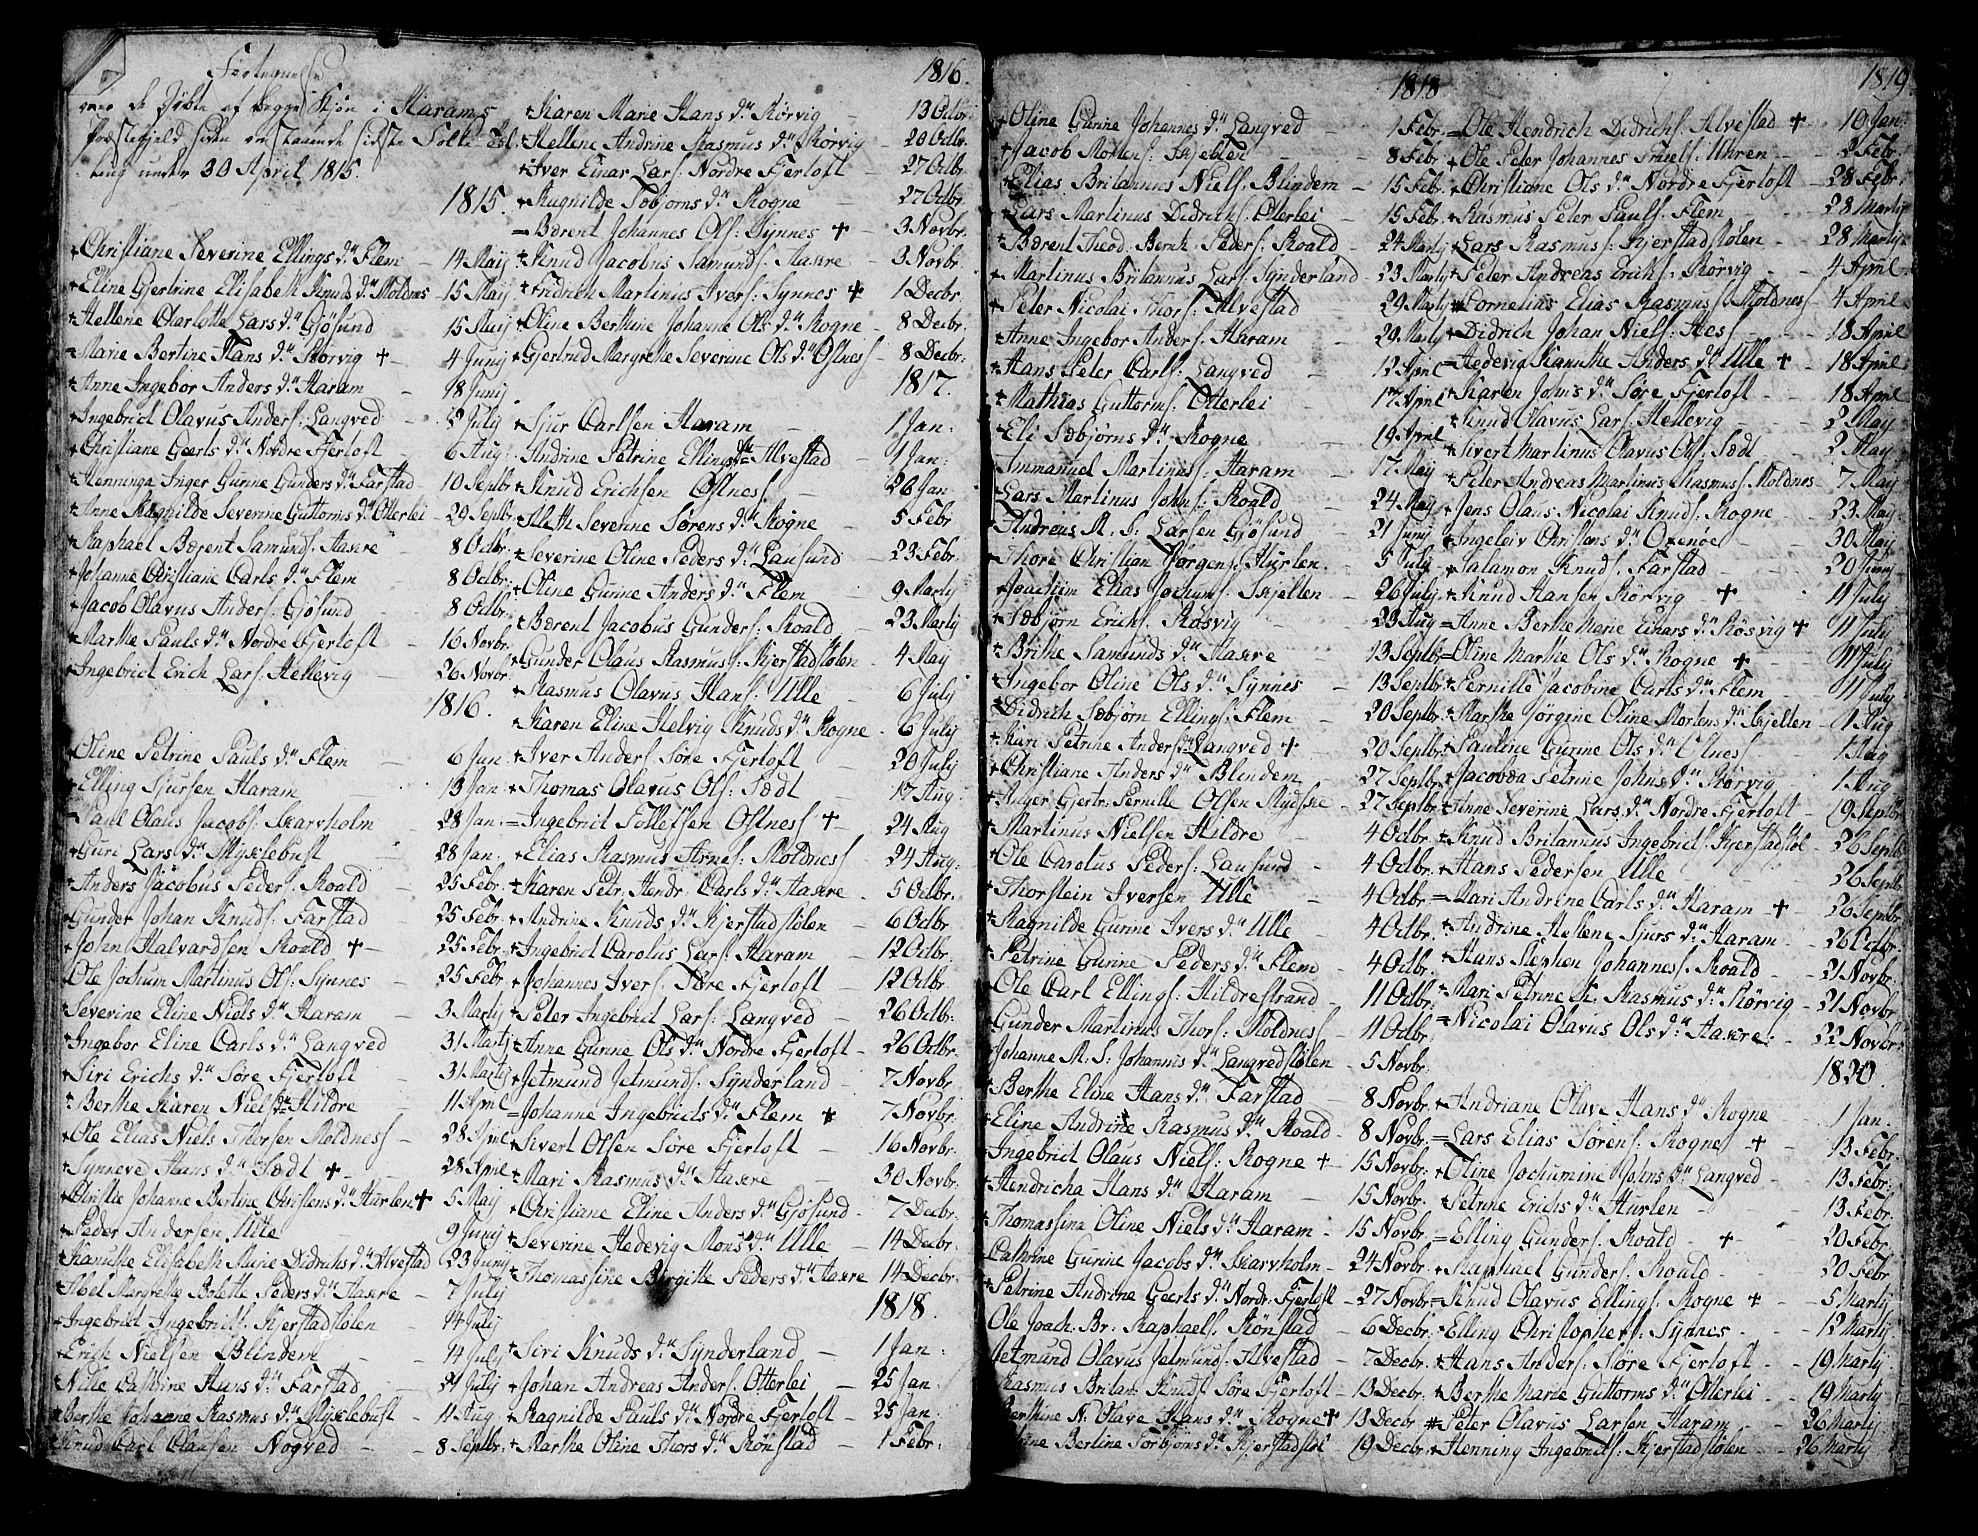 Fortegnelse
over de døbte af begge Kjøn i Harams
Præstegjeld siden
under 30 April 1815.
1815.
Christiane Severine Ellings d:r Flem - 14 Maij
Eline Gjertrine Elisabeth Knuds d:r Moldnes - 15 Maij
Hellene Charlotte Lars d:r Gjøsund 15 Maij
Marie Bertine Hans d:r Rørvig + - 4 Junij
Anne Ingebor Anders d:r Haram - 18 Junij
Ingebrict Olavus Anders: Langved - 2 Julij
Christiane Geerts d:r Nordre Fjertoft - 6 Aug:
Henninga Inger Gurine Gunders d:r Farstad - 10 Septbr
Anne Ragnilde Severine Guttorms d:r Otterlei - 29 Septbr
Raphael Bærent Samunds: Aakre - 8 Octbr:
Johanne Christiane Carls d:r Flem 8 Octbr:
Jacob Olavus Anders: Gjøsund - 8 Octbr
Marthe Pauls d:r Nordre Fjertoft - 16 Novbr:
Ingebrict Erich Lars: Hellevig - 26 Novbr
1816.
Oline Petrine Pauls d:r Flem - 6 Jan:
Elling Sjursen Haram - 13 Jan:
Paul Olaus Jacobs: Skarvholm 28 Jan:
Guri Lars d:r Myklebust - 28 Jan:
Anders Jacobus Peders: Roald - 25 Febr:
Gunder Johan Knuds: Farstad - 25 Febr:
John Halvardsen Roald + - 25 Febr:
Ole Jochum Martinus Ols: Synnes - 25 Febr
Severine Eline Niels d:r Haram - 3 Martij
Ingebor Eline Carls d:r Langved 31 Martij
Siri Erichs d:r Søre Fjertoft - 31 Martij
Berthe Karen Niels d:r Hildre - 11 April
Ole Elias Niels Thorsen Moldnes - 28 April
Synneve Hans d:r Sædt + - 28 April
Christie Johanne Bertine Christens d:r Hurlen + 5 Maij
Peder Andersen Ulle - 9 Junij
Kanuthe Elisabeth Maine Didrichs d:r Alvestad 23 Junij
Abel Margrethe Bolette Peders d:r Aakre - 7 Julij
Ingebrict Ingebricts: Kjerstadstølen - 14 Julij
Erich Nielsen Blindem - 14 Julij
Nille Cathrine Hans d:r Farstad - 21 Julij
Berthe Johanne Rasmus d:r Myklebust - 11 Aug
Knud Carl Olausen Nogved - - 8 Septbr:
1816.
Karen Marie Hans d:r Rørvig - 13 Octbr:
Hellene Andrine Rasmus d:r Rørvig - 20 Octbr:
Iver Einar Lars: Nordre Fjertoft - 27 Octbr
Ragnilde Sæbjørns d:r Rogne - 27 Octbr:
= Bærent Johannes Ols: Synnes + - 3 Novbr.
Knud Jacobus Samunds: Aakre - 3 Novbr.
Fridrich Martinus Ivers: Synnes + 1 Decbr.
Oline Berthine Johanne Ols d:r Rogne - 8 Decbr:
Gjertrud Margrethe Severine Ols d:r Ostnes - 8 Decbr:
1817.
Sjur Carlsen Haram - 1 Jan:
Andrine Petrine Ellings d:r Alvestad - 1 Jan:
Knud Erichsen Ostness - 26 Jan:
Aleth Severine Sørens d:r Rogne - 5 Febr
Severine Oline Peders d:r Lausund - 23 Febr.
Oline Gurine Anders d:r Flem - 9 Martij
Bærent Jacobus Gunders: Roald - 23 Martij
Gunder Olaus Rasmus: Kjerstadstølen - 4 Maij
Rasmus Olavus Hans: Ulle - 6 Julij
Karen Eline Helvig Knuds d:r Rogne - 6 Julij
Iver Anders: Søre Fjertoft - 20 Julij
Thomas Olavus Ols: Sædt - 17 Aug:
= Ingebrict Tollefsen Ostness + - 24 Aug
Elias Rasmus Arnes: Moldness - 24 Aug:
Karen Petr: Hendr: Carls d:r Aakre - 5 Octbr.
Andrine Knuds d:r Kjerstadstølen - 6 Octbr
Ingebrict Carolus Lars: Haram - 12 Octbr.
Johannes Ivers: Søre Fjertoft - 12 Octbr
Peter Ingebrict Lars: Langved - 26 Octb:
Anne Gurine Ols d:r Nordre Fjertoft - 26 Octbr.
Jetmund Jetmunds: Synderland - 7 Novbr.
= Johanne Ingebricts d:r Flem + 7 Novbr.
Sivert Olsen Søre Fjertoft - 16 Novbr.
Mari Rasmus d:r Aakre - 30 Novbr.
Christiane Eline Anders d:r Gjøsund - 7 Decbr:
Severine Hedevig Mons d:r Ulle - 14 Decbr:
Thomassine Birgitte Peders d:r Aakre 14 Decbr:
1818.
Siri Knuds d:r Synderland - 1 Jan:
Johan Andreas Anders: Otterlei - 25 Jan:
Ragnilde Pauls d:r Nordre Fjertoft - 25 Jan:
Marthe Oline Thors d:r Rønstad - 1 Febr:
1818
Oline Gurine Johannes d:r Langved - 1 Febr.
Jacob Mortens: Skjelten - 8 Febr
Elias Britannus Niels: Blindem - 15 Feb.
Lars Martinus Didrichs: Otterlei - 15 Feb.
Bærent Theod: Bernh: Peders: Roald - 24 Martij
Martinus Britannus Lars: Synderland 23 Martij
Peter Nicolai Thors: Alvestad - 29 Martij
Anne Ingebor Anders: Haram 29 Martij
Hans Peter Carls: Langved - 12 April
Mathias Guttorms: Otterlei - 17 April
Eli Sæbjørns d:r Rogne - 19 April
Immanuel Martinus: Haram - 17 Maij
Lars Martinus Johns: Roald - 24 Maij
Andreas M. S. Larsen Gjøsund - 21 Junij
Thore Christian Jørgens: Hurlen - 5 Julij
Joachim Elias Jochums: Skjelten - 26 Julij
Sæbjørn Erichs: Røsvig - 23 Aug
Brithe Samunds d:r Aakre - 13 Septbr
Ingebor Oline Ols d:r Synnes - 13 Septbr
Didrich Sæbjørn Ellings: Flem - 20 Septbr
Kari Petrine Anders: Langved + - 20 Septbr
Christiane Anders d:r Blindem - 27 Septbr
Inger Gjertr: Pernille Olsen Myhre - 27 Septbr
Martinus Nielsen Hildre - 4 Octbr.
Ole Carolus Peders: Lausund - 4 Octbr.
Thorstein Iversen Ulle - 4 Octbr.
Ragnilde Gurine Ivers d:r Ulle - 4 Octbr.
Petrine Gurine Peders d:r Flem - 4 Octbr.
Ole Carl Ellings: Hildrestrand - 11 Octbr:
Gunder Martinus Thors: Moldness - 11 Octbr:
Johanne M. S: Johannis d:r Langvedstølen - 5 Novbr.
Berthe Eline Hans d:r Farstad - 8 Novbr.
Eline Andrine Rasmus d:r Roald - 8 Novbr.
Ingebrict Olaus Niels: Rogne + - 15 Novbr:
Hendricha Hans d:r Haram - 15 Novbr.
Thomassina Oline Niels d:r Haram - 15 Novbr.
Cathrine Gurine Jacobs d:r Skarvholm - 24 Novbr.
Petrine Andrine Geerts d:r Nordr: Fjertoft - 27 Novbr
Ole Joach: Br: Raphaels: Rønstad - 6 Decbr:
Jetmund Olavus Jetmunds: Alvestad - 7 Decbr:
Rasmus Britan: Knuds: Søre Fjertoft - 13 Decbr:
Berthine N: Olave Hans d:r Rogne + 13 Decbr
Bertine Torbjøns d:r Kjerstadstøl 19 Decbr
1819
= Ole Hendrich Didrichs: Alvestad + - 10 Jan:
Ole Peter Johannes Truels: Uhren - - 2 Febr
Christiane Ols d:r Nordre Fjertoft - 28 Febr:
Rasmus Peter Pauls: Flem - - 28 Martij
Lars Rasmus: Kjerstadstølen - 28 Martij
Peter Andreas Erichs: Rørvig - - 4 April
Cornelius Elias Rasmus: Moldness - 4 April
Didrich Johan Niels: Hess - - 18 April
= Hedevig Kanuthe Anders d:r Ulle + - 18 April
Karen Johns d:r Søre Fjertoft - 18 April
Knud Olavus Lars: Hellevig - - 2 Maij
Sivert Martinus Olavus Ols: Sædt - 2 Maij
Peter Andreas Martinus Rasmus: Moldnes - 7 Maij
Jens Olaus Nicolai Knuds: Rogne - 23 Maij
Ingeleiv Christens d:r Oxenøe - - 30 Maij
Salamon Knuds: Farstad - 20 Junij
Knud Hansen Rørvig + - 11 Julij
= Anne Berthe Marie Einars d:r Røsvig + 11 Julij
= Oline Marthe Ols d:r Rogne + - 11 Julij
Pernille Jacobine Carls d:r Flem - 11 Julij
Marthe Jørgine Oline Mortens d:r Skjelten - 1 Aug
Pauline Gurine Ols d:r Ostness - 1 Aug
Jacobæa Petrine Johns d:r Rørvig - 1 Aug
Anne Severine Lars d:r Nordre Fjertoft - 9 Septbr
Knud Britannus Ingebricts: Kjerstadstøl - 26 Septb
Hans Pedersen Ulle 26 Septbr
= Mari Andrine Carls d:r Haram + - 26 Septbr
Andrine Hellene Sjurs d:r Haram - - 26 Octbr.
Hans Stephen Johannes: Roald - - 21 Novbr:
Mari Petrine K. Rasmus d:r Rørvig - 21 Novbr.
= Nicolai Olavus Ols d:r Aakre: - 22 Novbr:
1820.
Andriane Olave Hans d:r Rogne 1 Jan.
= Lars Elias Sørens: Rogne + - 13 Febr.
Oline Jochumine Johns d:r Langved - - 13 Febr:
Petrine Erichs d:r Hurlen - - 13 Febr:
= Elling Gunders: Roald - + - 20 Febr.
Raphael Gunders: Roald - - 20 Febr
= Knud Olavus Ellings: Rogne + - 5 Martij
Elling Christophers: Synnes - - 12 Martij
Hans Anders: Søre Fjertoft - - 19 Martij
Berthe Marie Guttorms d:r Otterlei - - 19 Martij
Peter Olavus Larsen Haram - - 26 Martij
Henning Ingebricts: Kjerstadstølen - 26 Martij